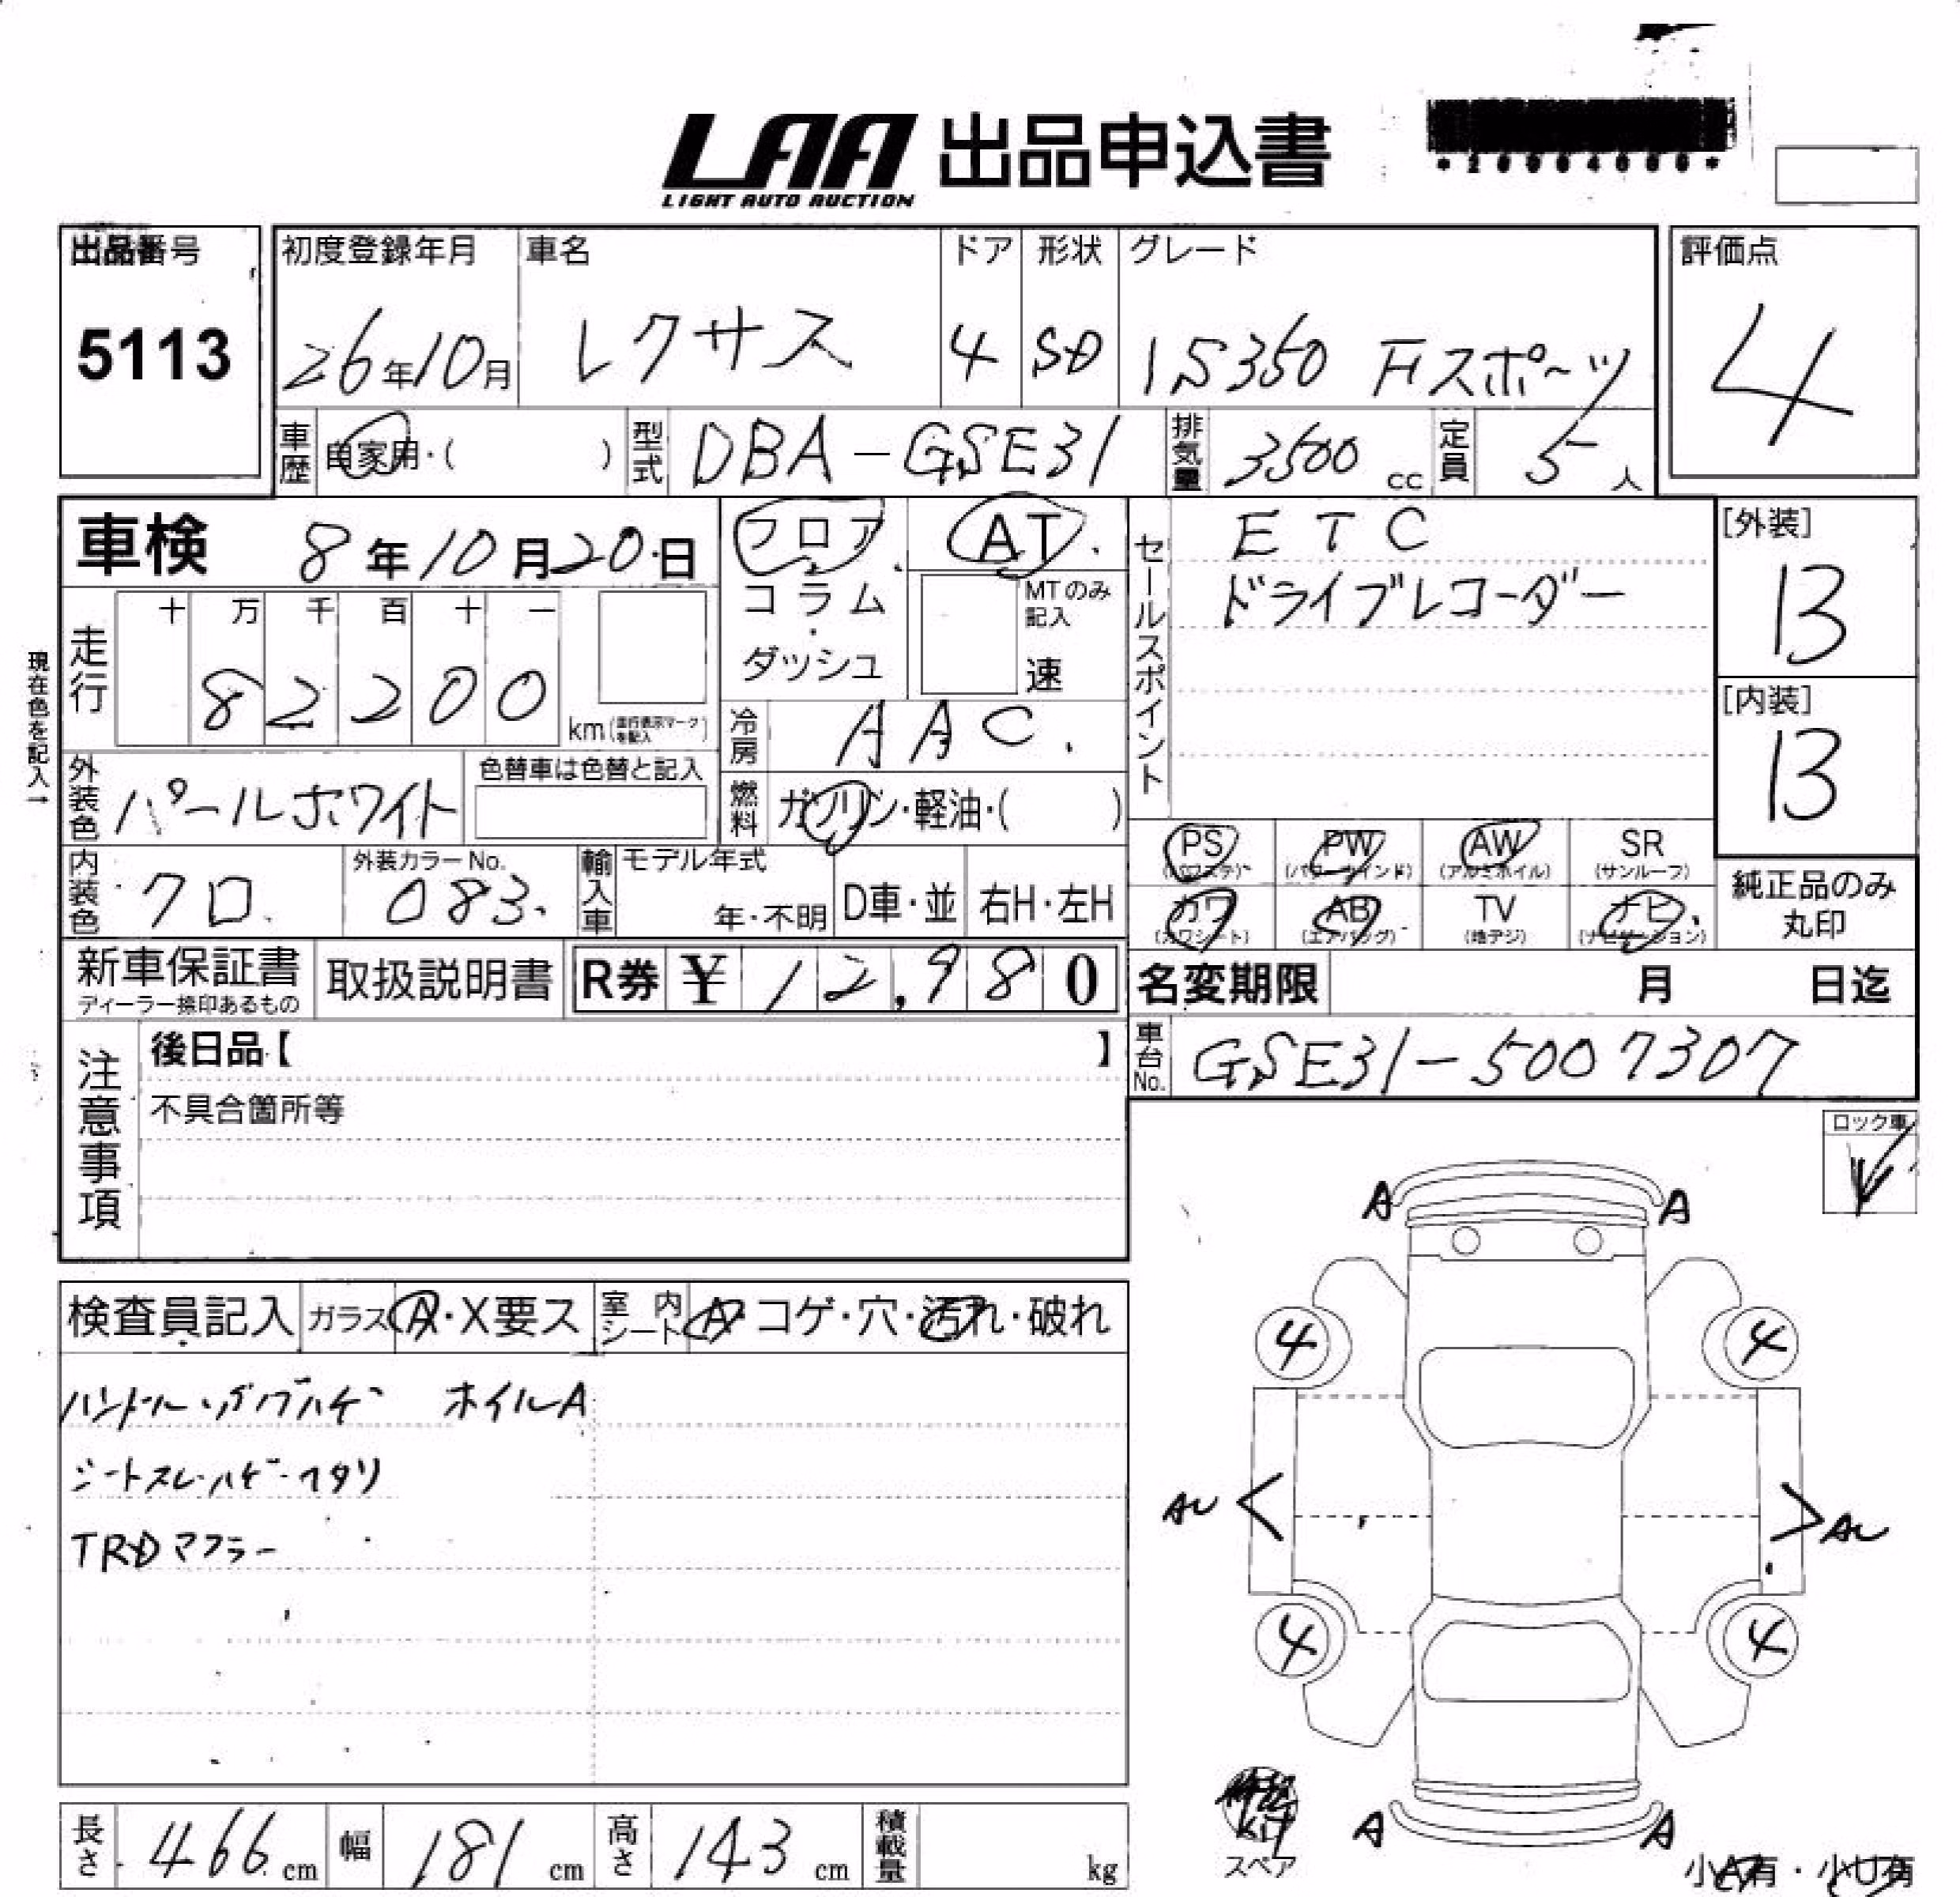 LAA 出品申込書
LIGHT AUTO AUCTION
出品番号
5113
初度登録年月
26年10月
車名
レクサス
ドア
4
形状
SD
グレード
IS350 Fスポーツ
評価点
4
車歴 自家用・( )
型式 DBA-GSE31
排気量 3500 cc
定員 5人
車検 8年10月20日
フロア
コラム
ダッシュ
AT
MTのみ記入
速
走行
十 万 千 百 十 一
8 2 2 0 0
km(走行表示マークを記入)
現在色を記入→
冷房 AAC
燃料 ガソリン・軽油・( )
セールスポイント
ETC
ドライブレコーダー
[外装]
B
[内装]
B
外装色 パールホワイト
色替車は色替と記入
内装色 クロ
外装カラーNo.
083
輸入車
モデル年式
年・不明
D車・並
右H・左H
PS (パワステ)
PW (パワーウインド)
AW (アルミホイル)
SR (サンルーフ)
カワ (カワシート)
AB (エアバッグ)
TV (地デジ)
ナビ (ナビゲーション)
純正品のみ丸印
新車保証書
ディーラー捺印あるもの
取扱説明書
R券 ¥ 12,980
名変期限 月 日迄
車台No. GSE31-5007307
注意事項
後日品【 】
不具合箇所等
ロック車
検査員記入
ガラス A・X要ス
室内シート A・コゲ・穴・汚れ・破れ
ホイルA
シートスレ・ハゲ・ヘタリ
TRDマフラー
A A
4 4
AU AU
4 4
A A
スペア
小A有・小U有
長さ 466 cm
幅 181 cm
高さ 143 cm
積載量 kg